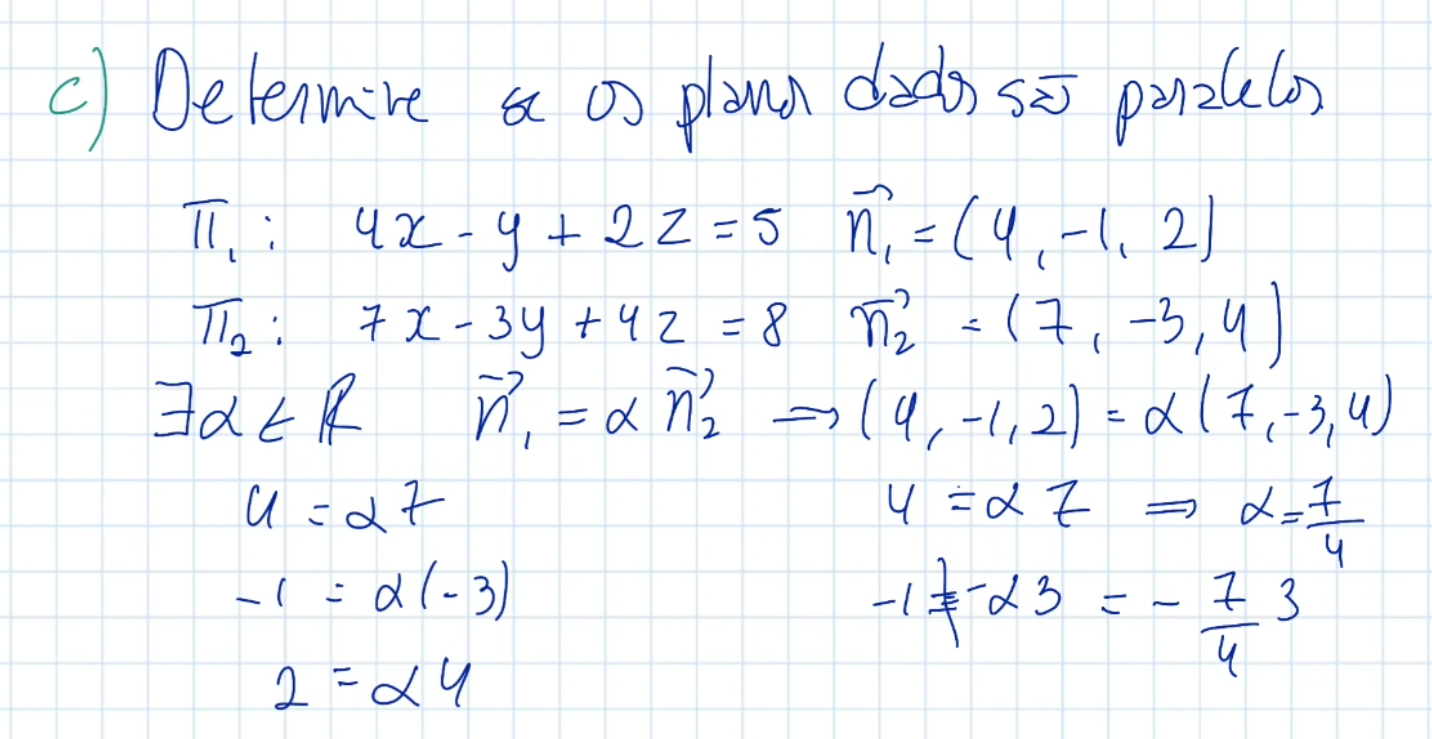 c) Determine se os planos dados são paralelos
π₁: 4x - y + 2z = 5 n⃗₁ = (4, -1, 2)
π₂: 7x - 3y + 4z = 8 n⃗₂ = (7, -3, 4)
∃α ∈ ℝ n⃗₁ = α n⃗₂ ⇒ (4, -1, 2) = α(7, -3, 4)
4 = α7 4 = α7 ⇒ α = 7/4
-1 = α(-3) -1 ≠ -α3 = - 7/4 3
2 = α4